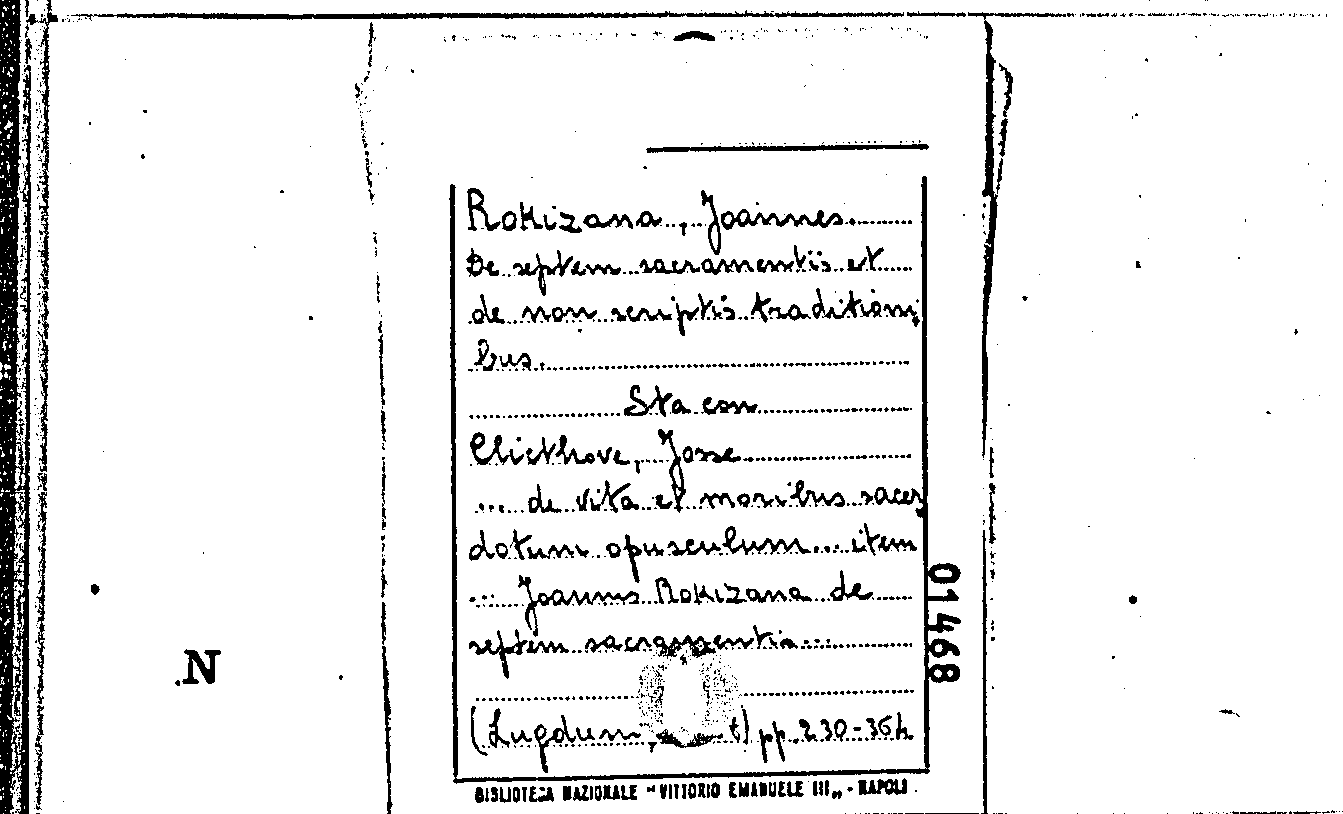 Rokizana, Joannes.
De septem sacramentis et
de non scriptis traditioni
bus.
Sta con
Clicthove, Josse
... de vita et moribus sacer
dotum opusculum... item
... Joannis Rokizana de
septem sacramentis...
(Lugduni, t) pp. 230-364
BIBLIOTECA NAZIONALE "VITTORIO EMANUELE III„ - NAPOLI
01468
N